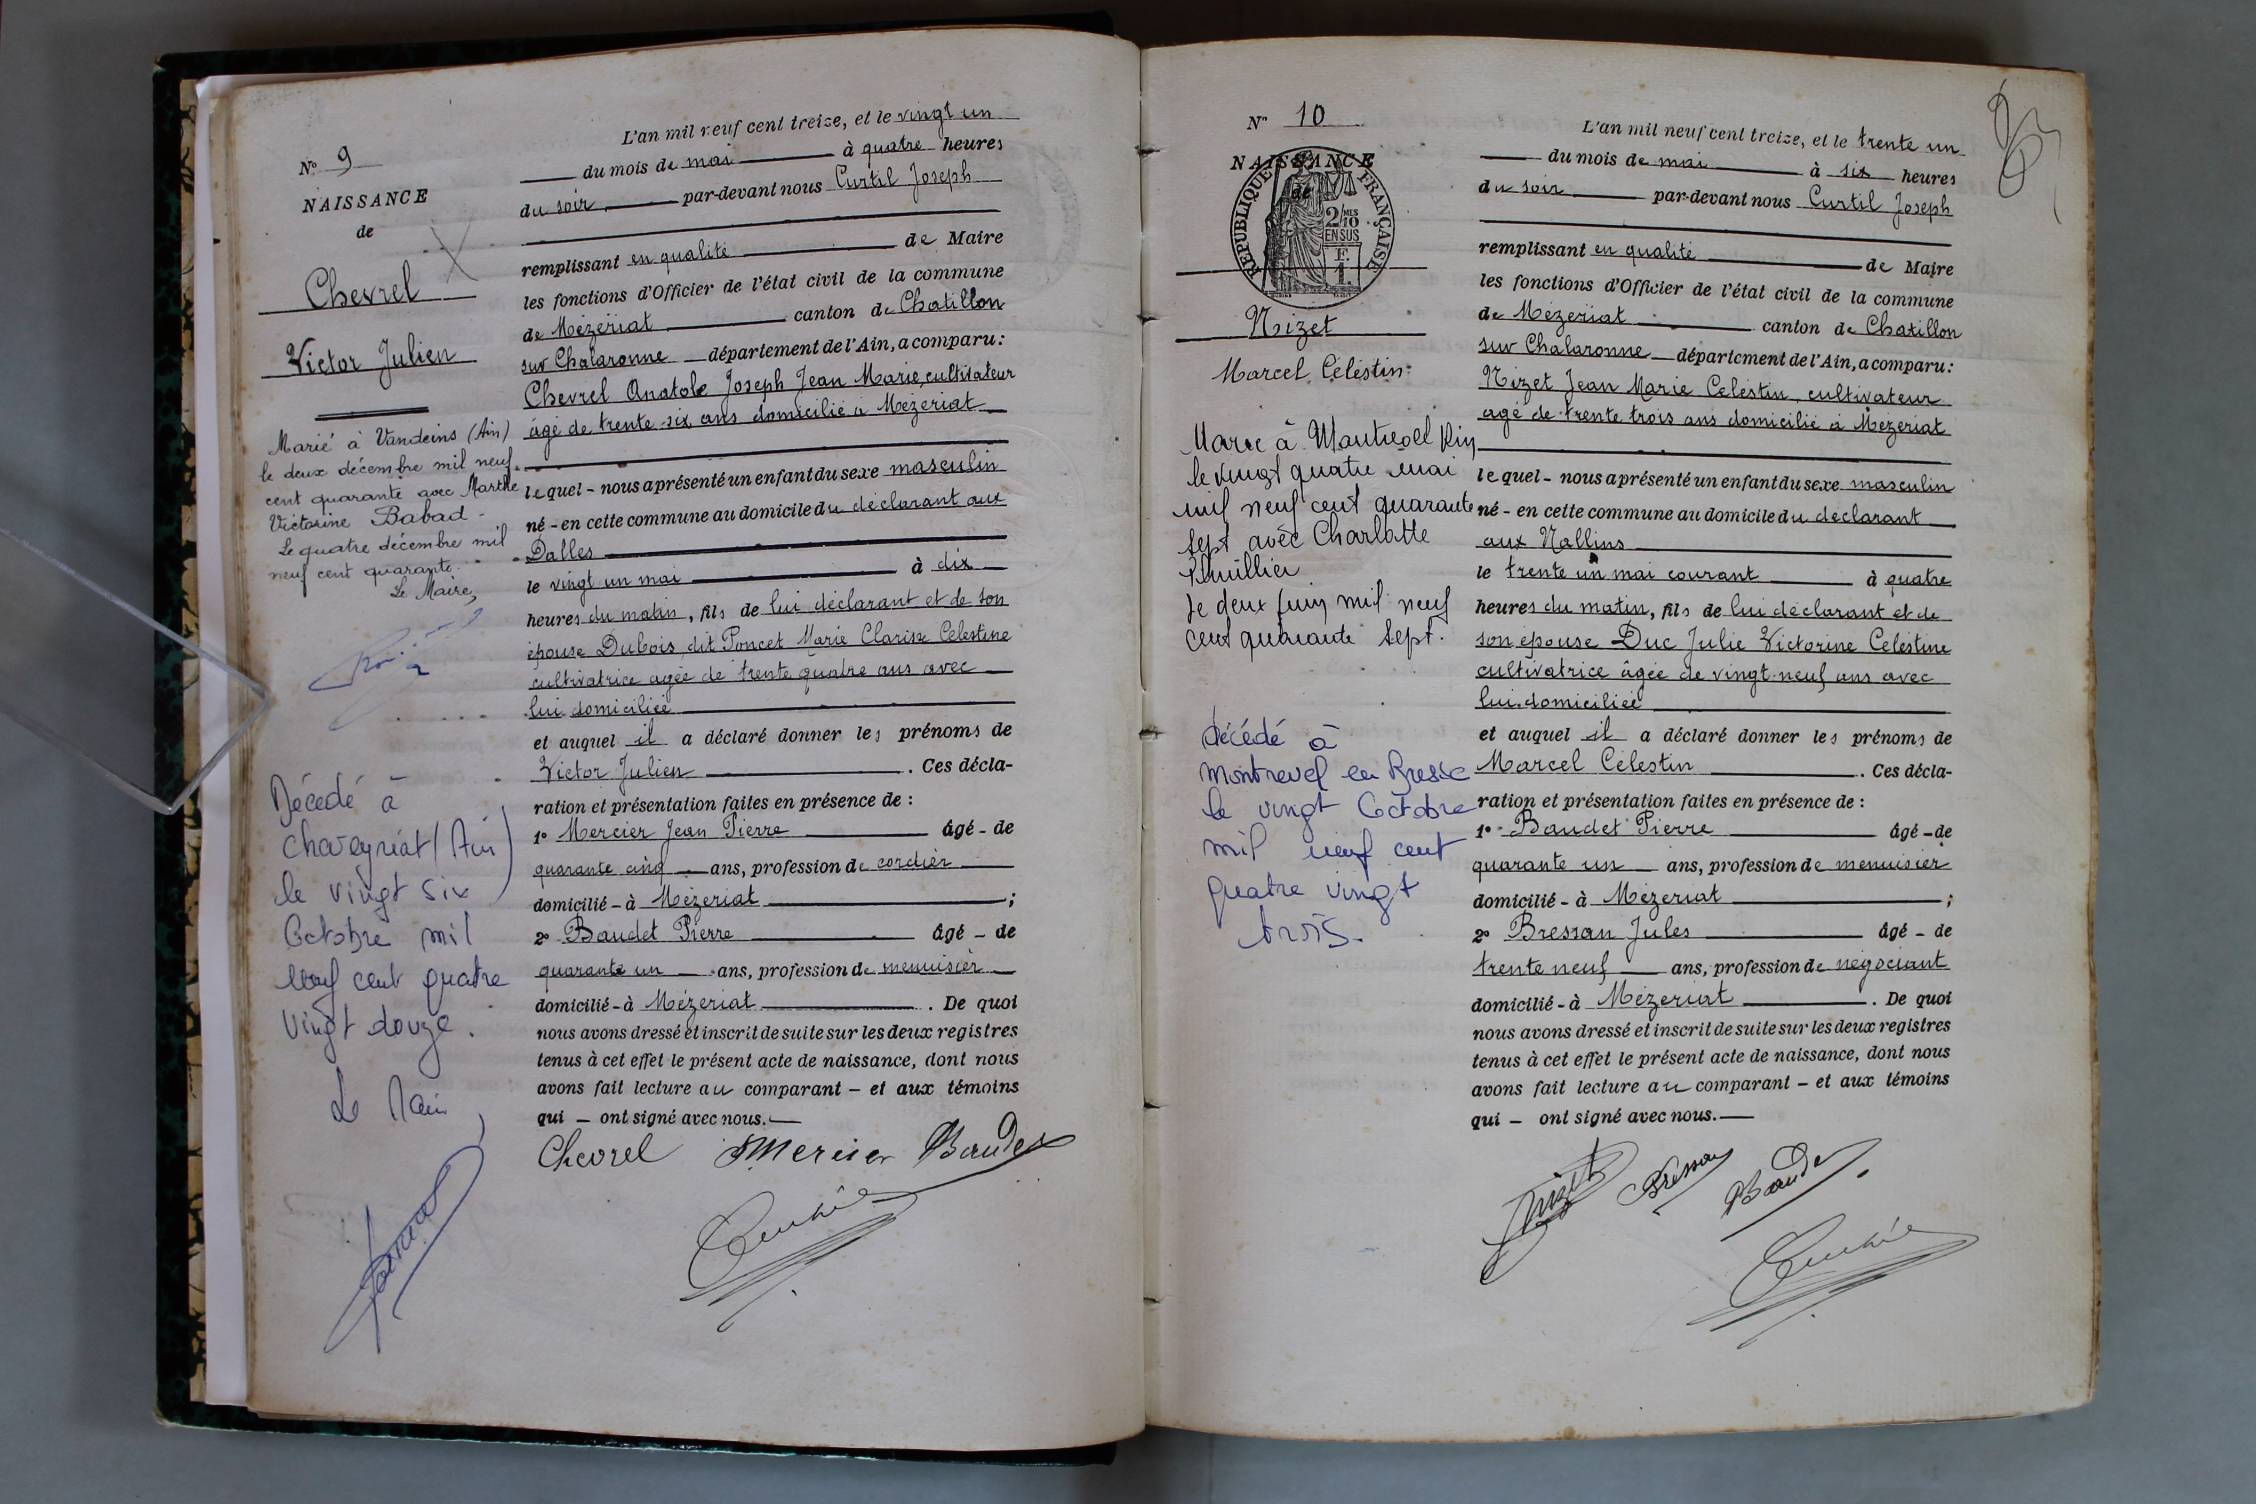 N° 9
NAISSANCE
de
Chevrel
Victor Julien
Marié à Vandeins (Ain)
le deux décembre mil neuf
cent quarante avec Marthe
Victorine Babad -
Le quatre décembre mil
neuf cent quarante.
Le Maire,
Décédé à
Chaveyriat (Ain)
le vingt six
Octobre mil
neuf cent quatre
vingt douze.
Le Maire
L'an mil neuf cent treize, et le vingt un
du mois de mai à quatre heures
du soir, par-devant nous Curtil Joseph
remplissant en qualité de Maire
les fonctions d'Officier de l'état civil de la commune
de Mézériat canton de Chatillon
sur Chalaronne département de l'Ain, a comparu :
Chevrel Anatole Joseph Jean Marie, cultivateur
âgé de trente-six ans domicilié à Mézériat
lequel - nous a présenté un enfant du sexe masculin
né - en cette commune au domicile du déclarant aux
Dalles
le vingt un mai à dix
heures du matin, fils de lui déclarant et de son
épouse Dubois dit Poncet Marie Clarisse Célestine
cultivatrice agée de trente quatre ans avec
lui domiciliée
et auquel il a déclaré donner les prénoms de
Victor Julien . Ces décla-
ration et présentation faites en présence de :
1° Mercier Jean Pierre âgé - de
quarante cinq ans, profession de cordier
domicilié - à Mézériat ;
2° Baudet Pierre âgé - de
quarante un ans, profession de menuisier
domicilié - à Mézériat . De quoi
nous avons dressé et inscrit de suite sur les deux registres
tenus à cet effet le présent acte de naissance, dont nous
avons fait lecture au comparant - et aux témoins
qui - ont signé avec nous.
Chevrel Mercier Baudet
N° 10
NAISSANCE
de
RÉPUBLIQUE FRANÇAISE
2/10 MES
EN SUS
F.
1.
Nizet
Marcel Célestin
Marié à Montrevel Ain
le vingt quatre mai
mil neuf cent quarante
sept avec Charlotte
Le deux juin mil neuf
cent quarante sept.
Décédé à
Montrevel en Bresse
le vingt Octobre
mil neuf cent
quatre vingt
trois.
L'an mil neuf cent treize, et le trente un
du mois de mai à six heures
du soir par-devant nous Curtil Joseph
remplissant en qualité de Maire
les fonctions d'Officier de l'état civil de la commune
de Mézériat canton de Chatillon
sur Chalaronne département de l'Ain, a comparu :
Nizet Jean Marie Célestin, cultivateur
agé de trente trois ans domicilié à Mézériat
lequel - nous a présenté un enfant du sexe masculin
né - en cette commune au domicile du déclarant
aux Nallins
le trente un mai courant à quatre
heures du matin, fils de lui déclarant et de
son épouse Duc Julie Victorine Célestine
cultivatrice âgée de vingt-neuf ans avec
lui domiciliée
et auquel il a déclaré donner les prénoms de
Marcel Célestin . Ces décla-
ration et présentation faites en présence de :
1° Baudet Pierre âgé - de
quarante un ans, profession de menuisier
domicilié - à Mézériat ;
2° Bressan Jules âgé - de
trente neuf ans, profession de négociant
domicilié - à Mézériat . De quoi
nous avons dressé et inscrit de suite sur les deux registres
tenus à cet effet le présent acte de naissance, dont nous
avons fait lecture au comparant - et aux témoins
qui - ont signé avec nous.
Nizet Bressan Baudet